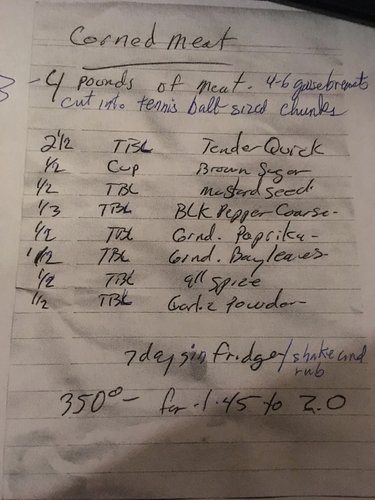 Corned meat
- 4 pounds of meat. 4-6 goosebreasts
cut into tennis ball sized chunks
2 1/2 TBL TenderQuick
1/2 Cup Brown Sugar
1/2 TBL mustard seed
1/3 TBL BLK Pepper Coarse-
1/2 TBL Grnd. Paprika-
1/2 TBL Grnd. Bayleaves
1/2 TBL All spice
1/2 TBL Garlic Powder
7 days in fridge/shake and
rub
350° - for 1.45 to 2.0